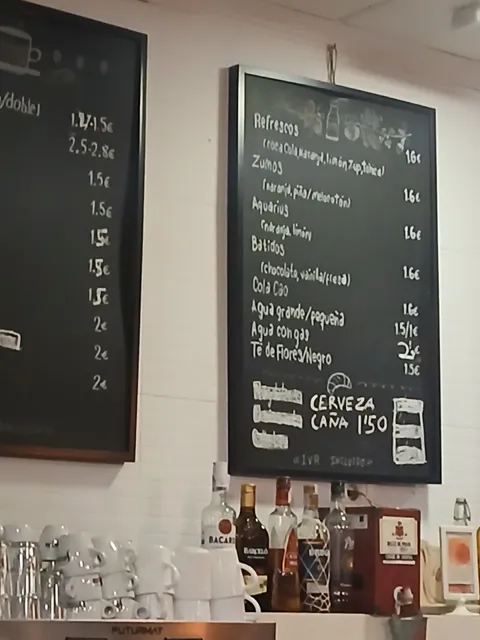 /doble)
1.5€
2.5-2.8€
1.5€
1.5€
1.5€
1.5€
1.5€
2€
2€
2€
Refrescos 1.6€
(Coca Cola, Naranja, limón, 7up,
Zumos
(naranja, piña/melocotón) 1.6€
Aquarius
(naranja, limón) 1.6€
Batidos
(chocolate, vainilla/fresa) 1.6€
Cola Cao
Agua grande/pequeña 1.6€
Agua con gas 1.5/1€
Té de Flores/Negro
1.5€
CERVEZA
CAÑA 1'50
IVA INCLUIDO
BACARDI
BARCELÓ
FUTURMAT